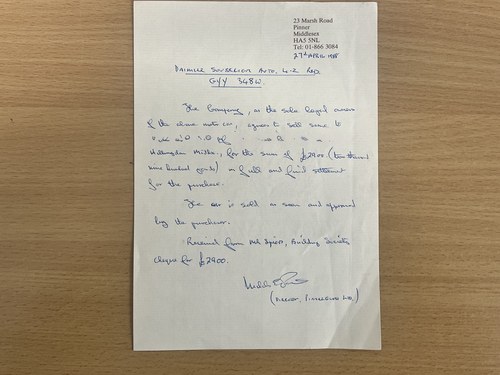 23 Marsh Road
Pinner
Middlesex
HA5 5NL
Tel: 01-866 3084
27th APRIL 1988
DAIMLER SOVEREIGN AUTO. 4-2
GYY 348W.
The Company, as the sole legal owners
of the above motor car, agree to sell same to
Hillingdon Middx, for the sum of £2900. (two thousand
nine hundred pounds) in full and final settlement
for the purchase.
The car is sold as seen and approved
by the purchaser.
Received from Building Society
cheque for £2900.
(DIRECTOR,